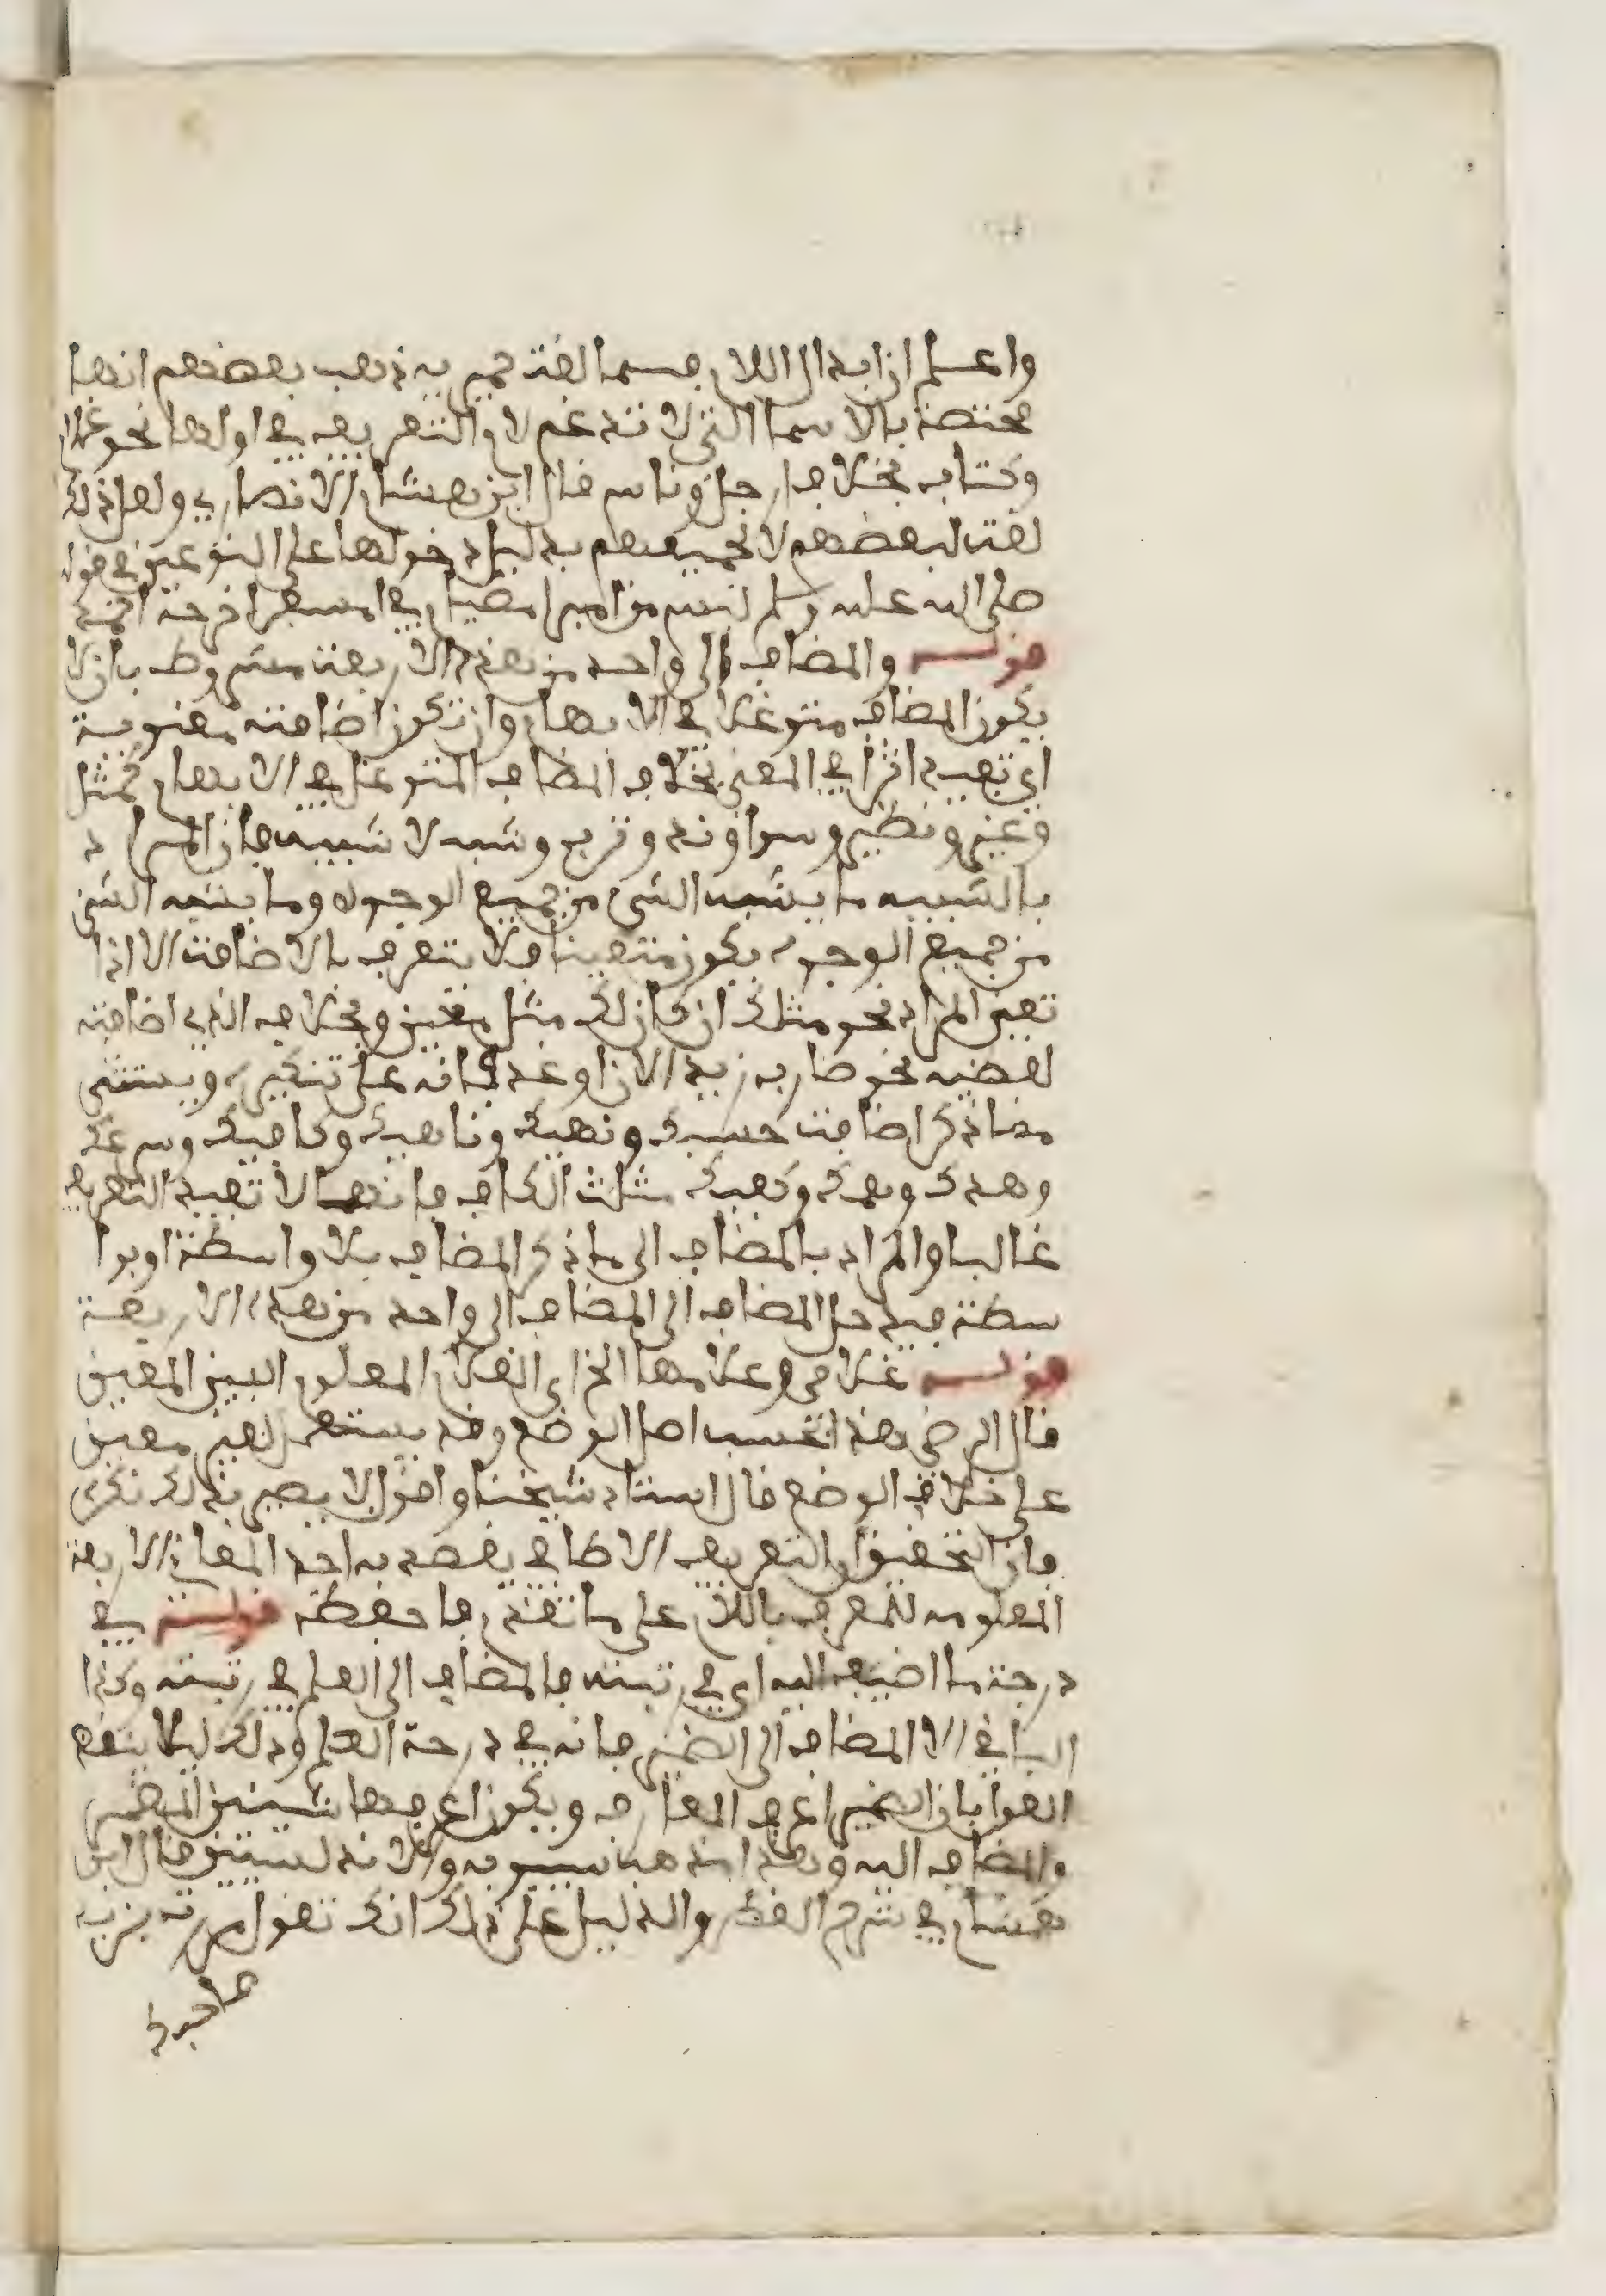 واعلم ان ابدال اللام ميما لغة حمير به ذهب بعضهم انها
مختصة بالاسما التي لا تدغم لام التعريف في اولها نحو غلام
وكتاب بخلاف رجل وناس قال ابن هشام الانصاري ولعل ذلك
لغة لبعضهم لا لجميعهم بدليل دخولها على النوعين في قوله
صلى الله عليه وسلم ليس من امبر امصيام في امسفر اخرجه احمد
قوله والمضاف الى واحد من هذه الاربعة مشروط بان لا
يكون المضاف متوغلا في الابهام وان تكون اضافته معنوية
اي تفيد اثرا في المعنى بخلاف المضاف المتوغل في الابهام كمثل
وغير ونظير وسوا وند وقرب وشبه لا شبيه فان المراد
بالشبيه ما يشبه الشي من جميع الوجوه وما يشبه الشي
من جميع الوجوه يكون متعينا فلا يتعرف بالاضافة الا اذا
تعين المراد نحو مثلك ان كان لك مثل معين وبخلاف الذي اضافته
لفضيه نحو ضارب زيد الان او غدا فانه على تنكيره ويستثنى
مما ذكر اضافة حسبك ونهيك وناهيك وكافيك وسرعك
وهدك وهمك وكفيك مثلث الكاف فانها لا تفيد التعريف
غالبا والمراد بالمضاف الى ما ذكر المضاف بلا واسطة او بوا
سطة فيدخل المضاف الى المضاف الى واحد من هذه الاربعة
قوله غلامي وغلامها الخ اي الغلام المعلوم البين المعين
قال الرضى هذا بحسب اصل الوضع وقد يستعمل لغير معين
على خلاف الوضع قال استاد شيخنا واقول لا يصير بذلك نكرة
فان التحقيق ان التعريف الاضافي يقصد به احد المعاني الاربعة
المعلومه للمعرف باللام على ما تقدم فاحفظه قوله في
درجة ما اضيف اليه اي في رتبته فالمضاف الى العلم في رتبته وكذا
الباقي الا المضاف الى الضمير فانه في درجة العلم وذلك ليلا ينقض
القول بان الضمير اعرف المعارف ويكون اعرفها شيئين المضمر
والمضاف اليه وهذا مذهب سيبويه والاندلسيين قال ابن
هشام في شرح القطر والدليل على ذلك انك تقول مررت بزيد
صاحبك